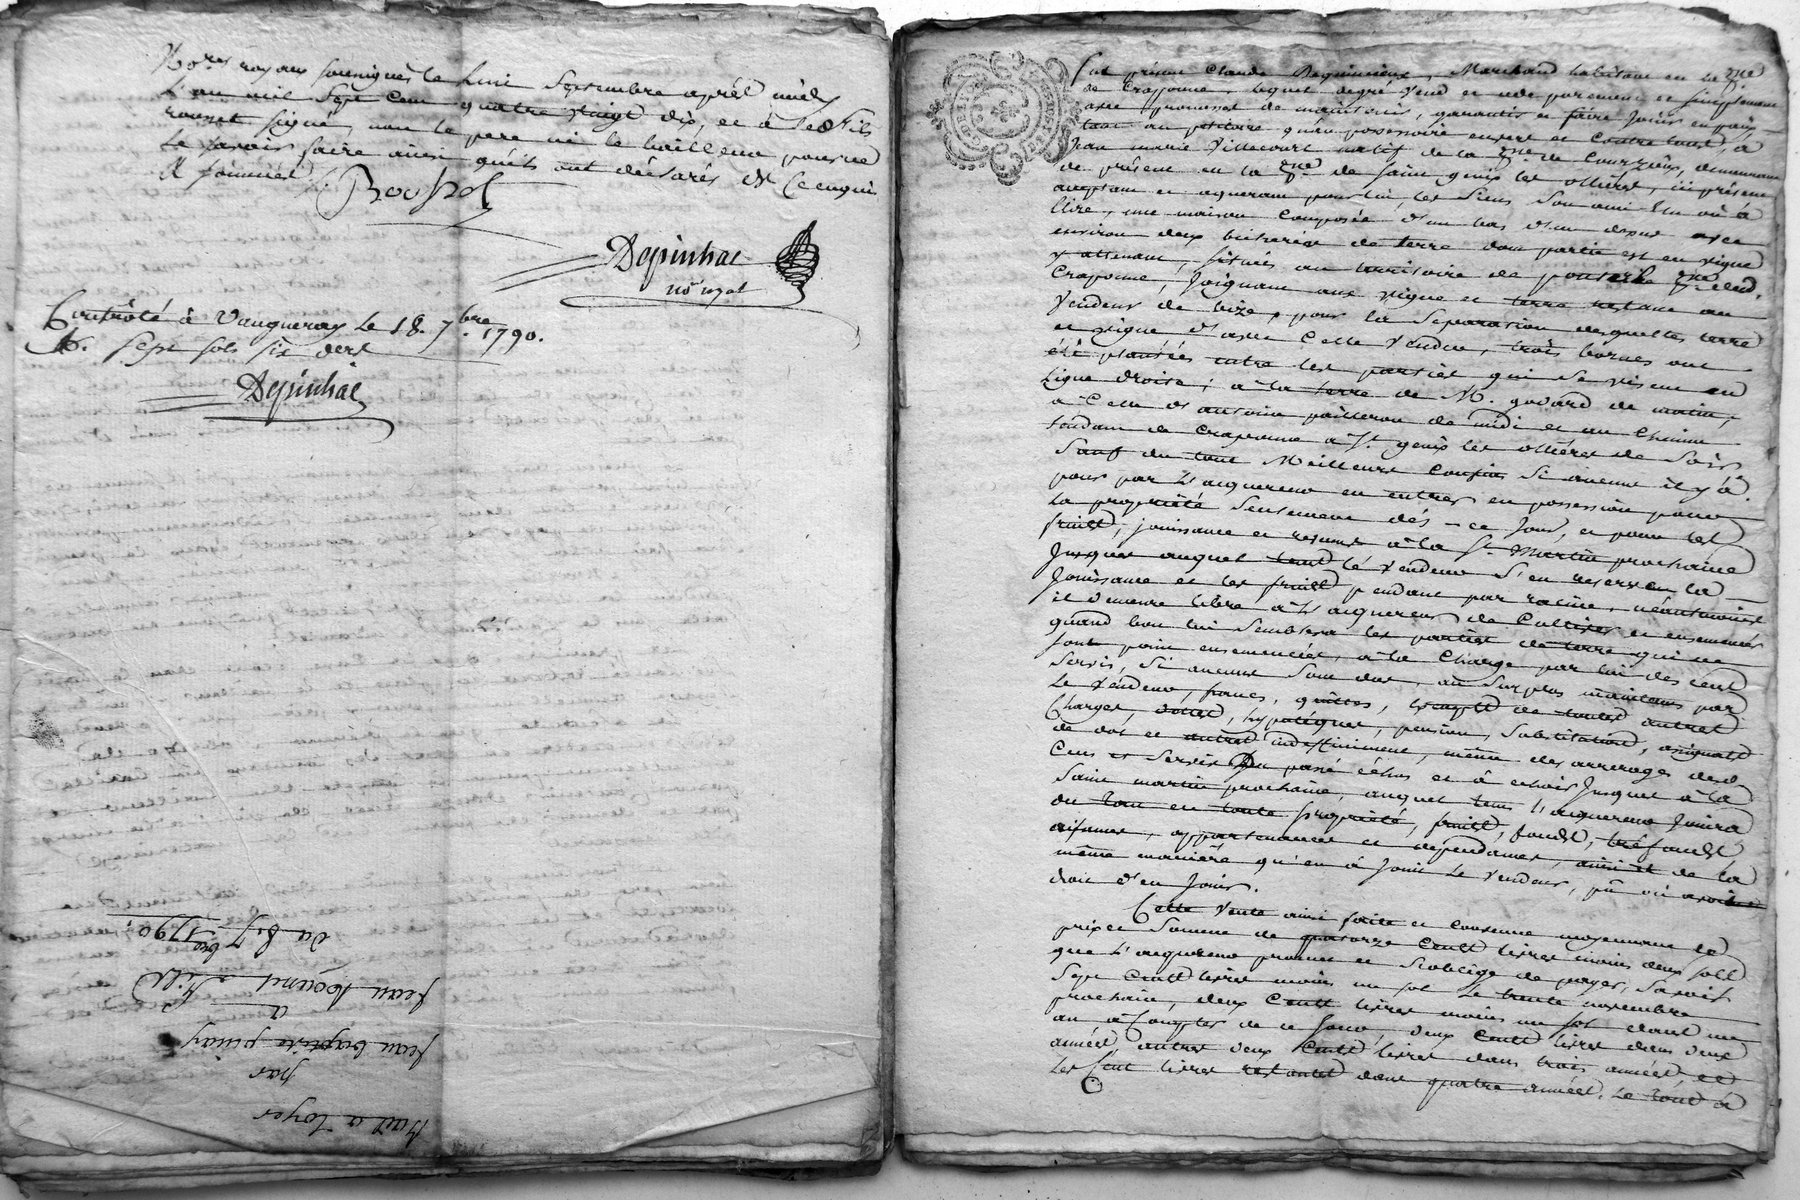 No.res royaux soussignés le huit Septembre après midy
L'an mil Sept Cent quatre vingt dix, et a Led. fils
rousset signé, non le pere ni le bailleur pour ne
Le savoir faire ainsi qu'ils ont déclarés de ce enquis
& sommés
Rousset
Depinhac
no.re royal
Contrôlé à Vaugneray Le 18. 7bre. 1790.
R. sept sols six ders
Depinhac
Bail a loyer
par
jean baptiste pinay
a
jean Rousset fils
du 8. 7bre 1790
fut présent Claude Deguimieux, Marchand habitant en la psse
de Craponne, lequel degré Vend et cede purement et simplement
avec promesse de maintenir, garantir et faire Jouir en paix
tant au petitoire qu'au possessoire envers et Contre tous, à
Jean marie Villecourt natif de la psse de Courzieu, demeurant
de présent en la psse de Saint genis les ollières, ici présent
acceptant et acquerant pour lui, les Siens Son ami Elu où à
Elire, une maison Composée d'un bas d'un dessus avec
environ deux bicherées de terre dont partie est en vigne
y attenant, Situés au territoire de psse dud.
Craponne, Joignant aux vigne et terre restant au
Vendeur de bize, pour la Separation desquelles terre
et vigne d'avec Celle Vendue, trois bornes ont
été plantées entre les parties qui se visent en
Ligne droite; à la terre de M. godard de matin,
à Celle d'antoine pailleron de midi et au Chemin
tendant de Craponne à St. genis les ollières de Soir
Sauf du tout Meilleurs Confins Si aucuns il y à
pour par L'acquereur en entrer en possession pour
la propriété Seulement dès-ce Jour, et pour les
fruits, jouissance et revenus à la St. Martin prochaine
Jusques auquel tems le Vendeur S'en reserve la
Jouissance et les fruits pendant par racine, néantmoins
il demeure libre à L'acquereur de Cultiver et ensemencer
quand bon lui Semblera les parties de terre qui ne
Sont point ensemencées, à la Charge par lui des Cens
Servis, Si aucuns Sont dus, au Surplus maintenus par
Le Vendeur, francs, quittes, exempts de toutes autres
Charges, dettes, hypotèques, pension, Substitution, assignats
de dot et autres indéfiniment, même des arrerages desd.
Cens et Servis Du passé échus et à echoir Jusques à la
Saint martin prochaine, auquel tems L'acquereur Jouira
du tout en toute propriété, fruits, fonds, tréfonds,
aisances, appartenances et dépendances, ainsi et de la
même manière qu'en à Joui Le Vendeur, pû où avoit
droit d'en Jouir.
Cette Vente ainsi faite et Convenue moyennant le
prix et Somme de quatorze Cents livres moins deux sols
que L'acquereur promet et S'oblige de payer, Savoir
Sept Cents livres moins un sol Le trente novembre
prochain, deux Cents livres moins un sol dans un
an à Compter de ce Jour, deux Cents livres dans deux
années autres deux Cents livres dans trois années, et
Les Cent livres restantes dans quatre années, Le tout à